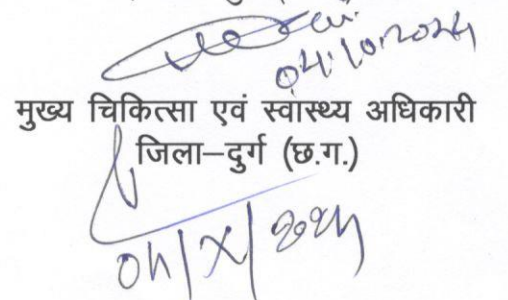 04.10.2024
मुख्य चिकित्सा एवं स्वास्थ्य अधिकारी
जिला–दुर्ग (छ.ग.)
04/X/2024